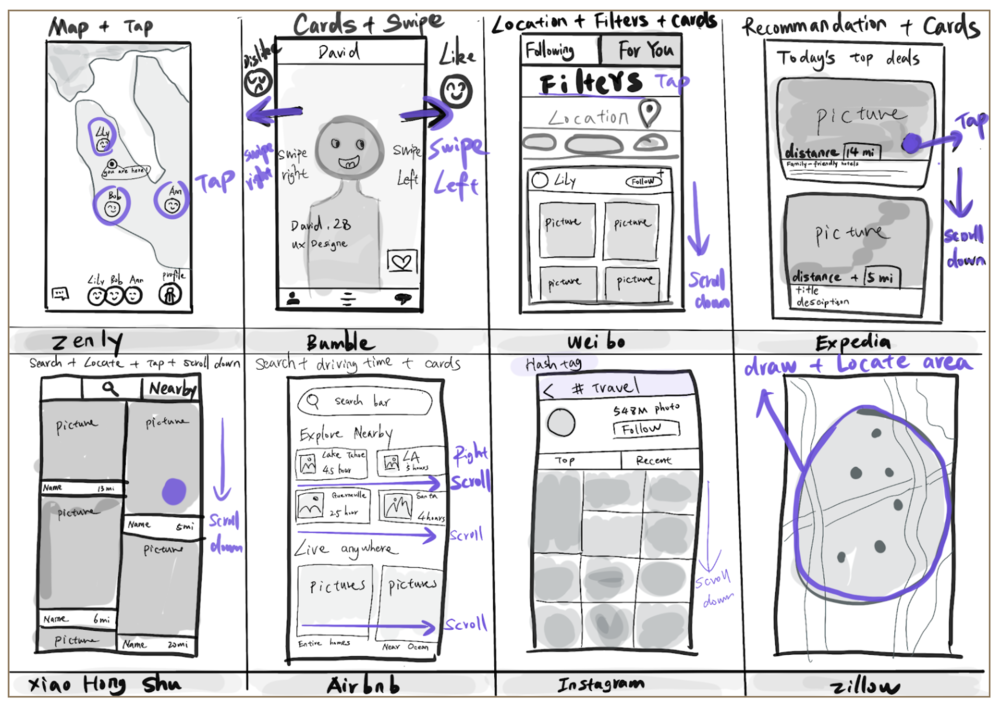 Map + Tap
Lily
you are here
Bob
Ann
Tap
Lily Bob Ann
profile
Zenly
Cards + Swipe
David
dislike
Like
swipe right
Swipe right
Swipe Left
Swipe Left
David. 28
UX Designe
Bumble
Location + Filters + cards
Following
For You
Filters Tap
Location
Lily
Follow
picture picture
picture picture
Scroll down
Weibo
Recommandation + Cards
Today's top deals
picture
distance 14 mi
Family-friendly hotels
Tap
picture
distance + 5 mi
title
desciption
scroll down
Expedia
Search + Locate + Tap + Scroll down
Nearby
picture
picture
Name 13mi
picture
Name 5mi
picture
Name 6mi
picture
Name 20mi
Scroll down
Xiao Hong Shu
Search + driving time + cards
search bar
Explore Nearby
Lake Tahoe
4.5 hour
LA
5 hours
Right
Scroll
Guerneville
2.5 hour
Santa
4 hours
Scroll
Live anywhere
pictures
pictures
Scroll
Entire homes
Near Ocean
Airbnb
Hashtag
# Travel
548M photo
Follow
Top
Recent
Scroll down
Instagram
draw + Locate area
Zillow